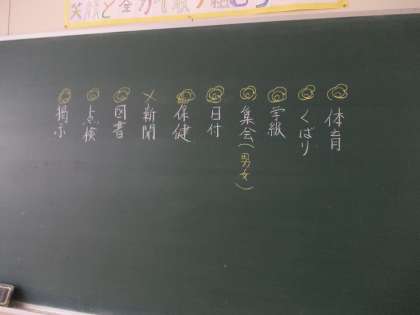 笑顔と全力で取り組もう
体育
くばり
学級
集会(男女)
日付
保健
×新聞
図書
点検
掲示